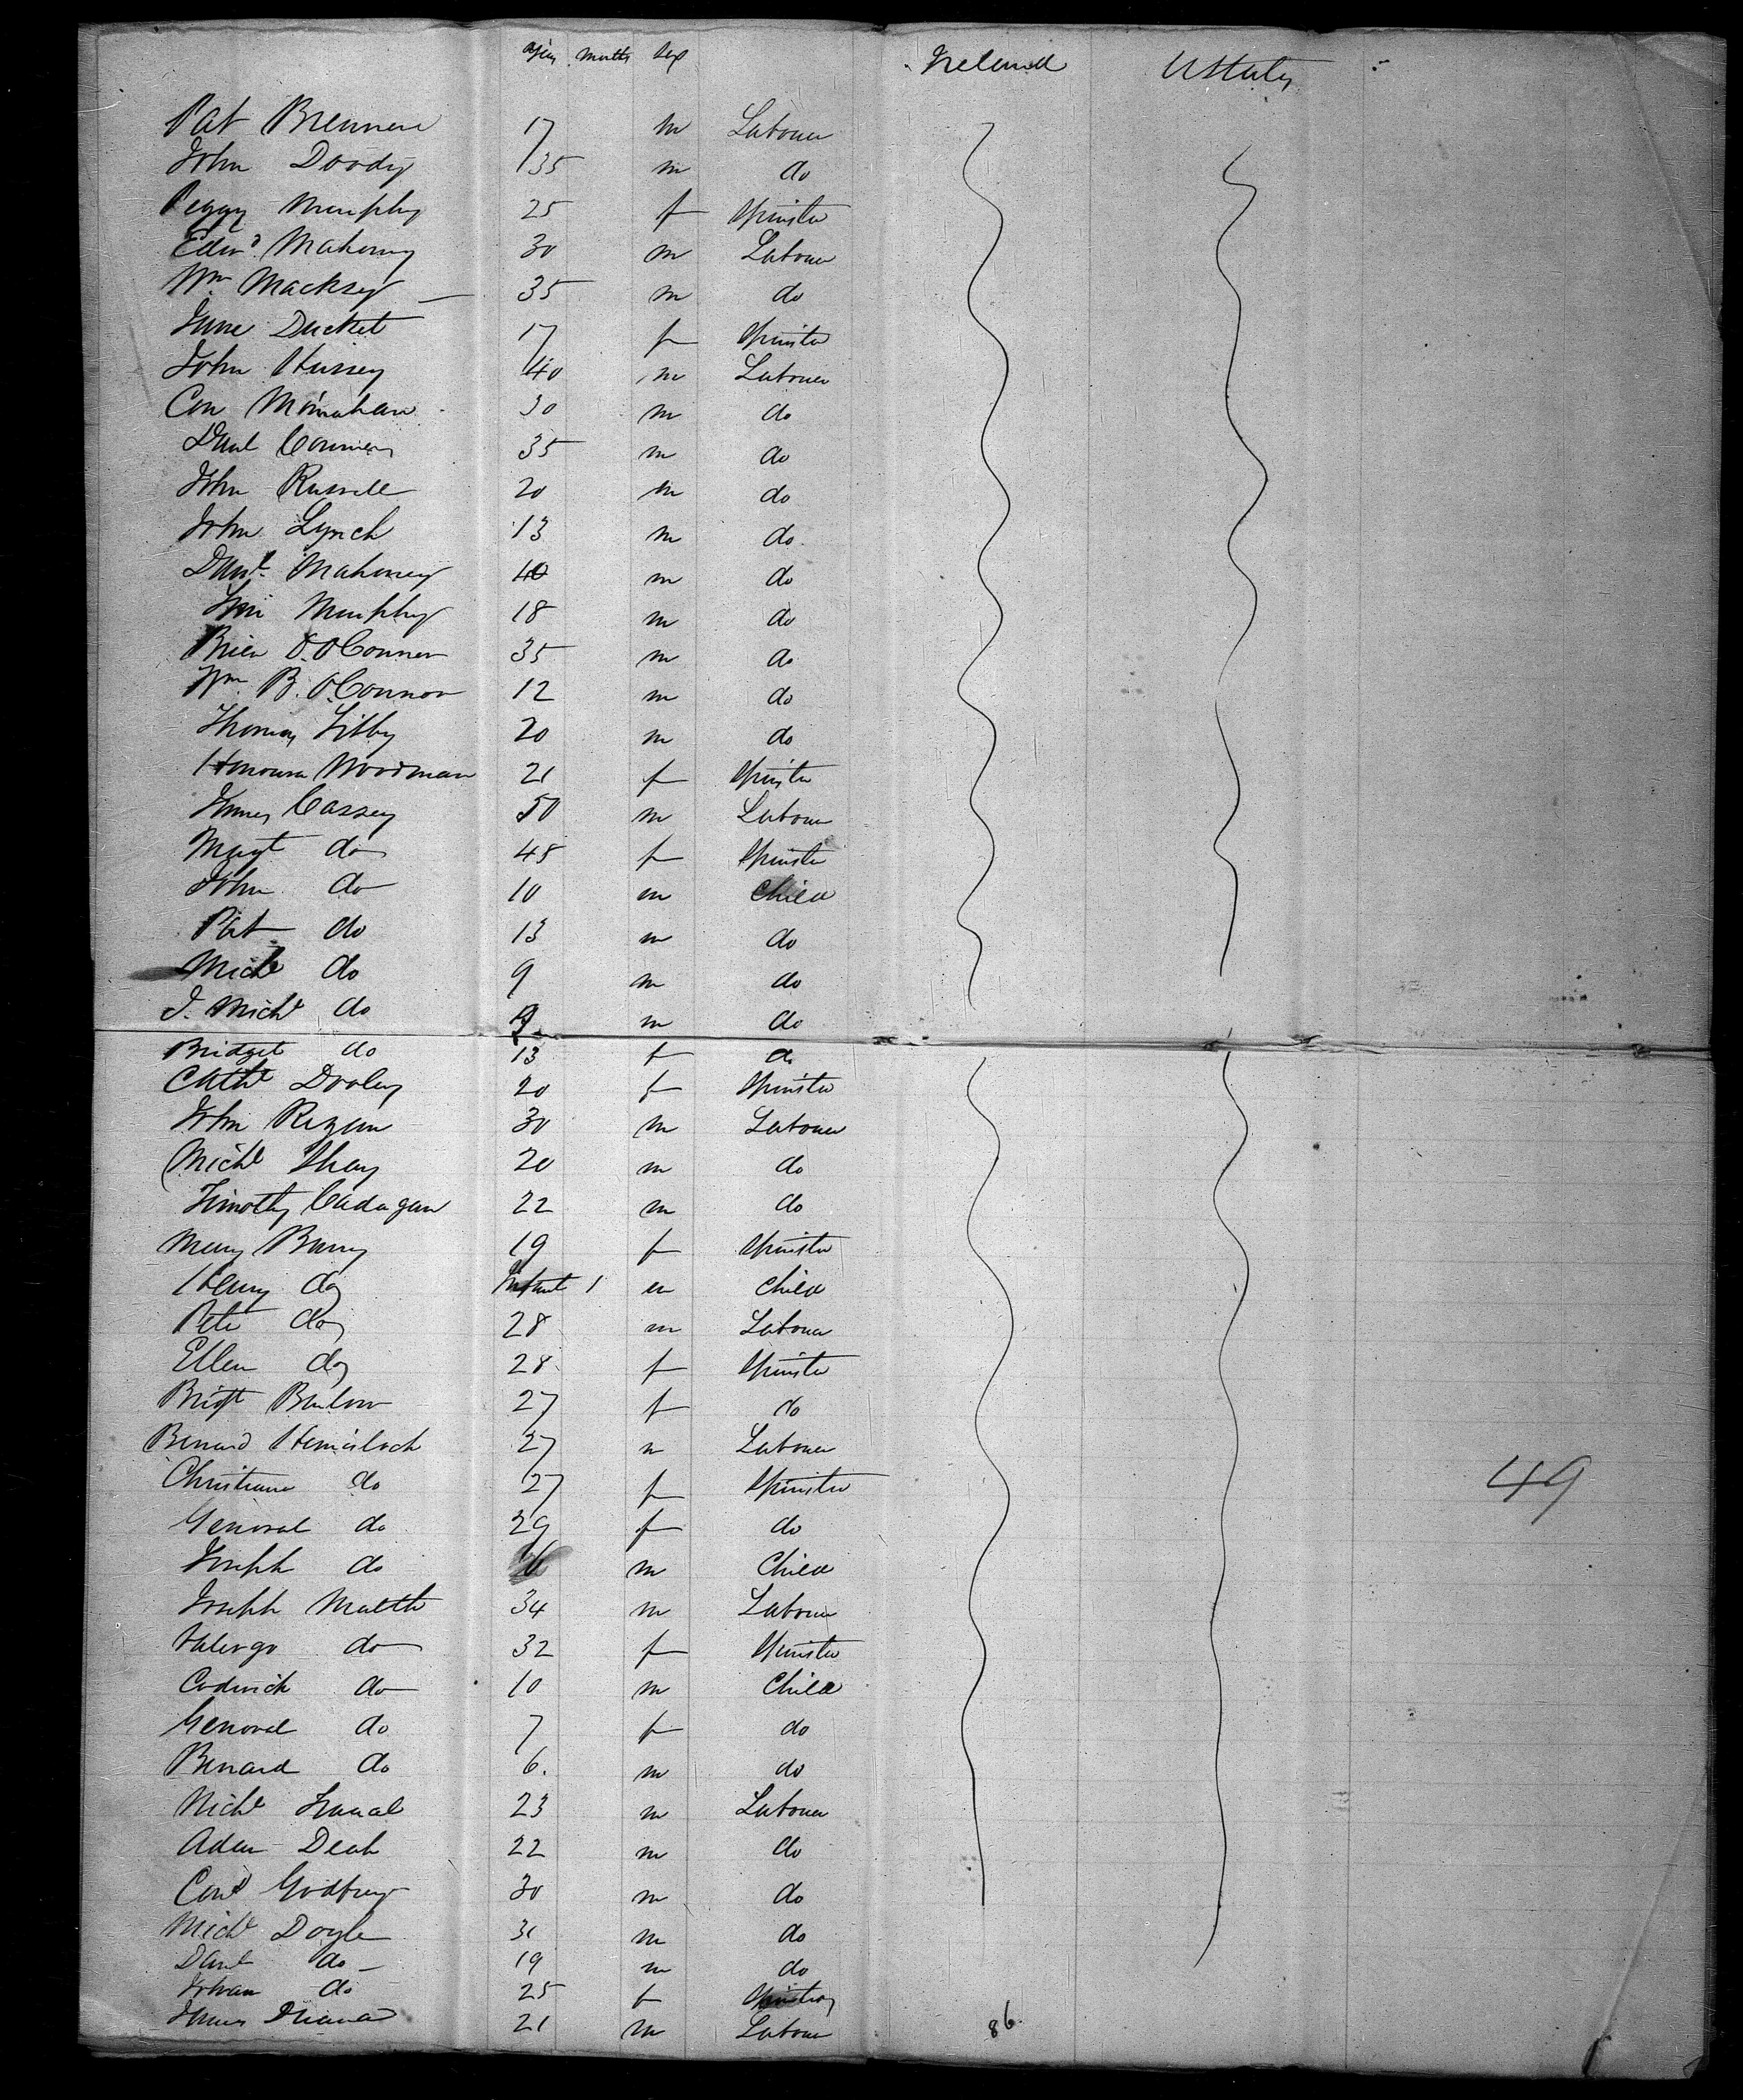 Years Months Sex Ireland UStates
Pat Brennen 17 m Labourer
John Doody 35 m do
Peggy Murphy 25 f Spinster
Edwd Mahoney 30 m Labourer
Wm Macksey 35 m do
Jane Ducket 17 f Spinster
John Hussey 40 m Labourer
Con Monahan 30 m do
Danl 35 m do
John Russell 20 m do
John Lynch 13 m do
Danl Mahoney 40 m do
Murphy 18 m do
Brien O.OConner 35 m do
Wm B. OConnor 12 m do
Thomas 20 m do
Honoura Woodman 21 f Spinster
James Cassey 50 m Labourer
Magt do 45 f Spinster
John do 10 m Child
Pat do 13 m do
Michl do 9 m do
J. Michl do m do
Bridget do 13 f do
Cathe Dooley 20 f Spinster
John Regan 30 m Labourer
Michl Shay 20 m do
Timothy Cadagan 22 m do
Mary Barry 19 f Spinster
Henry do Infant 1 m Child
Peter do 28 m Labourer
Ellen do 28 f Spinster
Brigt Barlow 27 f do
Benard 27 m Labourer
Christiana do 27 f Spinster
Genoval do 29 f do
Joseph do m Child
Joseph Matth 34 m Labourer
do 32 f Spinster
Codwick do 10 m Child
Genoval do 7 f do
Benard do 6. m do
Michl 23 m Labourer
Adam 22 m do
Godfrey 30 m do
Michl Doyle 31 m do
Danl do 19 m do
do 25 f Spinster
James 21 m Labourer
86
49